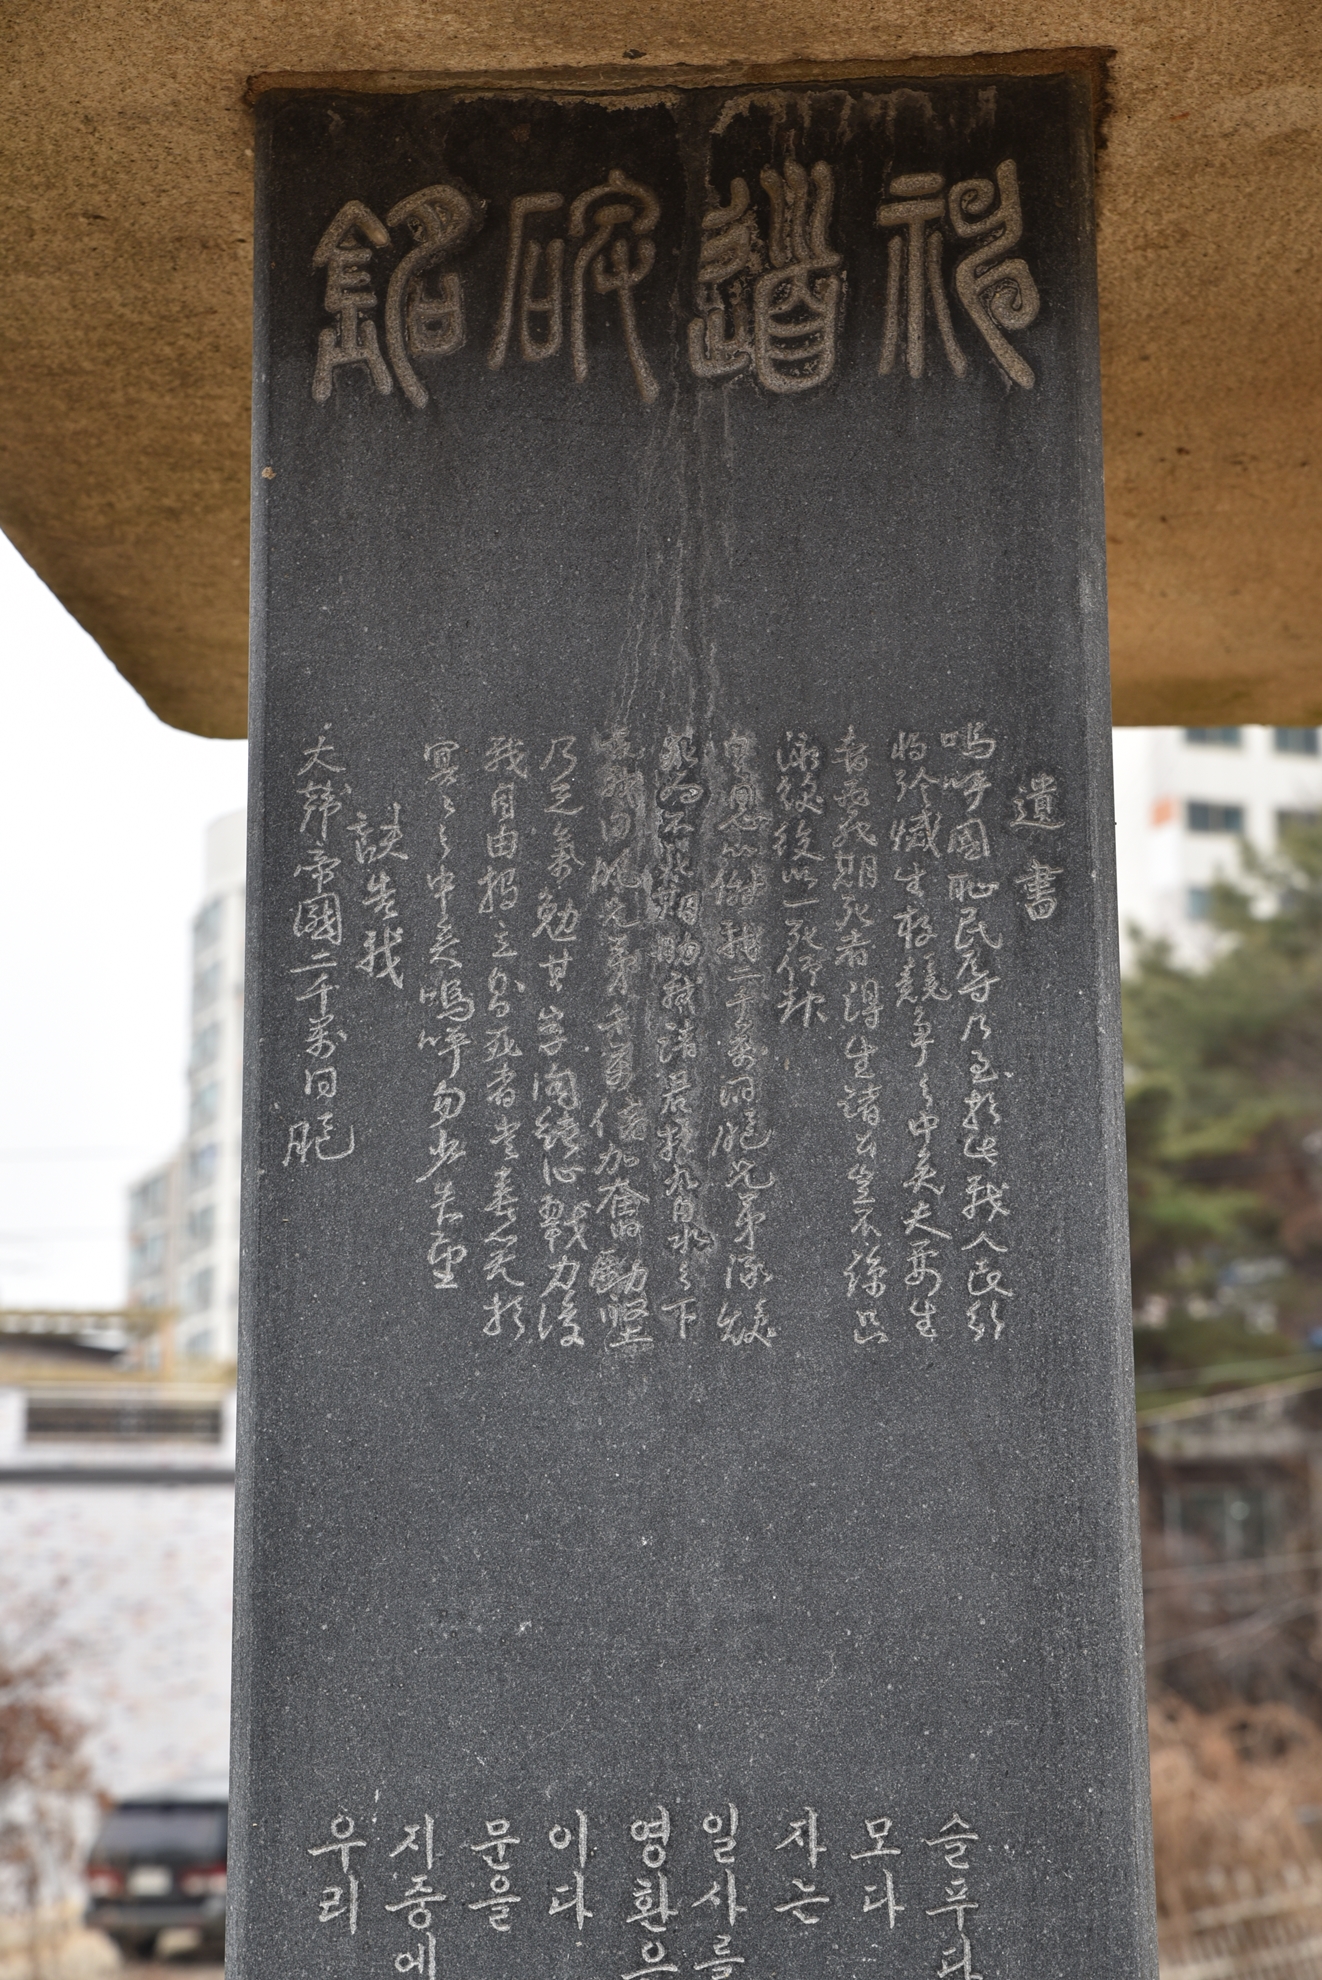 神道碑銘
遺書
嗚呼國恥民辱乃至於此我人民行
將殄滅生存競爭之中矣夫要生
者必死期死者得生諸公豈不諒只
泳煥徒以一死仰報
皇恩以謝我二千萬同胞兄弟泳煥
死而不死期助諸君於九泉之下
幸我同胞兄弟千萬倍加奮勵堅
乃志氣勉其學問結心戮力復
我自由獨立則死者當喜笑於
冥々之中矣嗚呼勿少失望
訣告我
大韓帝國二千萬同胞
슬푸다
모다
자는
일사를
영환은
이다
문을
지중에
우리